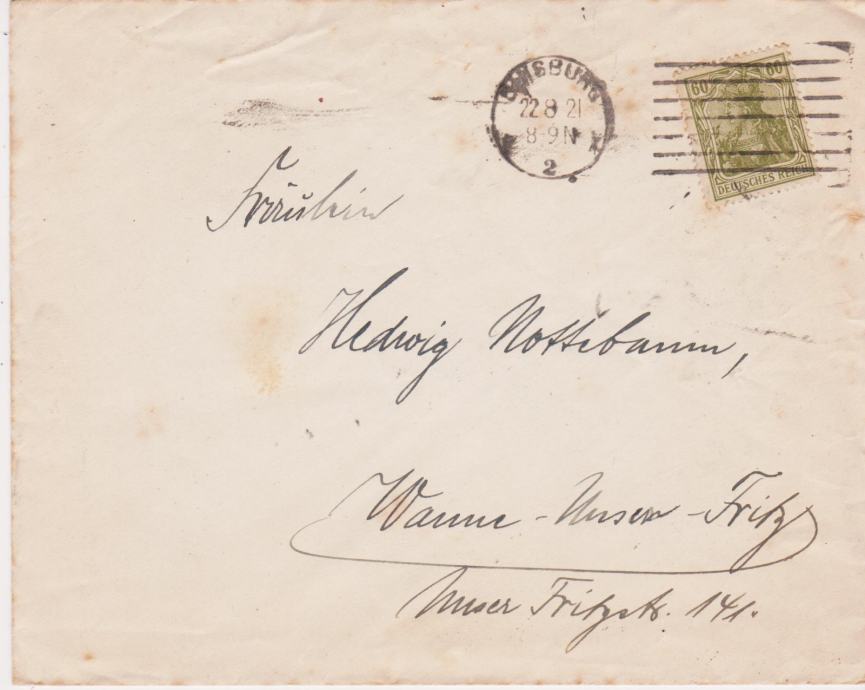 DUISBURG
22.8.21
8-9N
2
60
60
DEUTSCHES REICH
Fräulein
Hedwig Nottebaum,
Wanne-Unser-Fritz
Unser Fritzstr. 141.